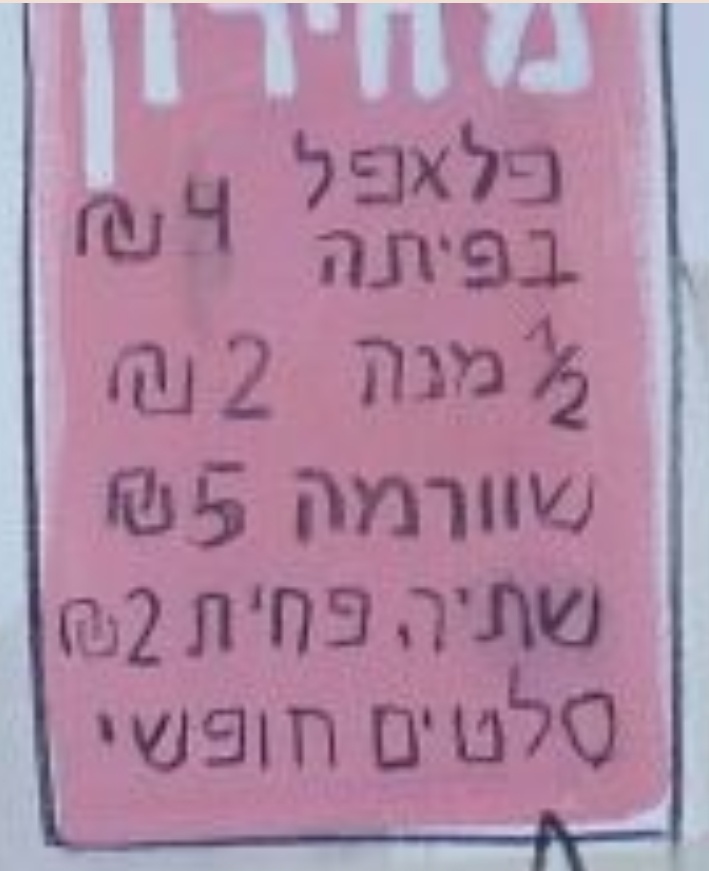 מחירון
פלאפל
בפיתה 4 ₪
½ מנה 2 ₪
שוורמה 5 ₪
שתיה פחית 2 ₪
סלטים חופשי